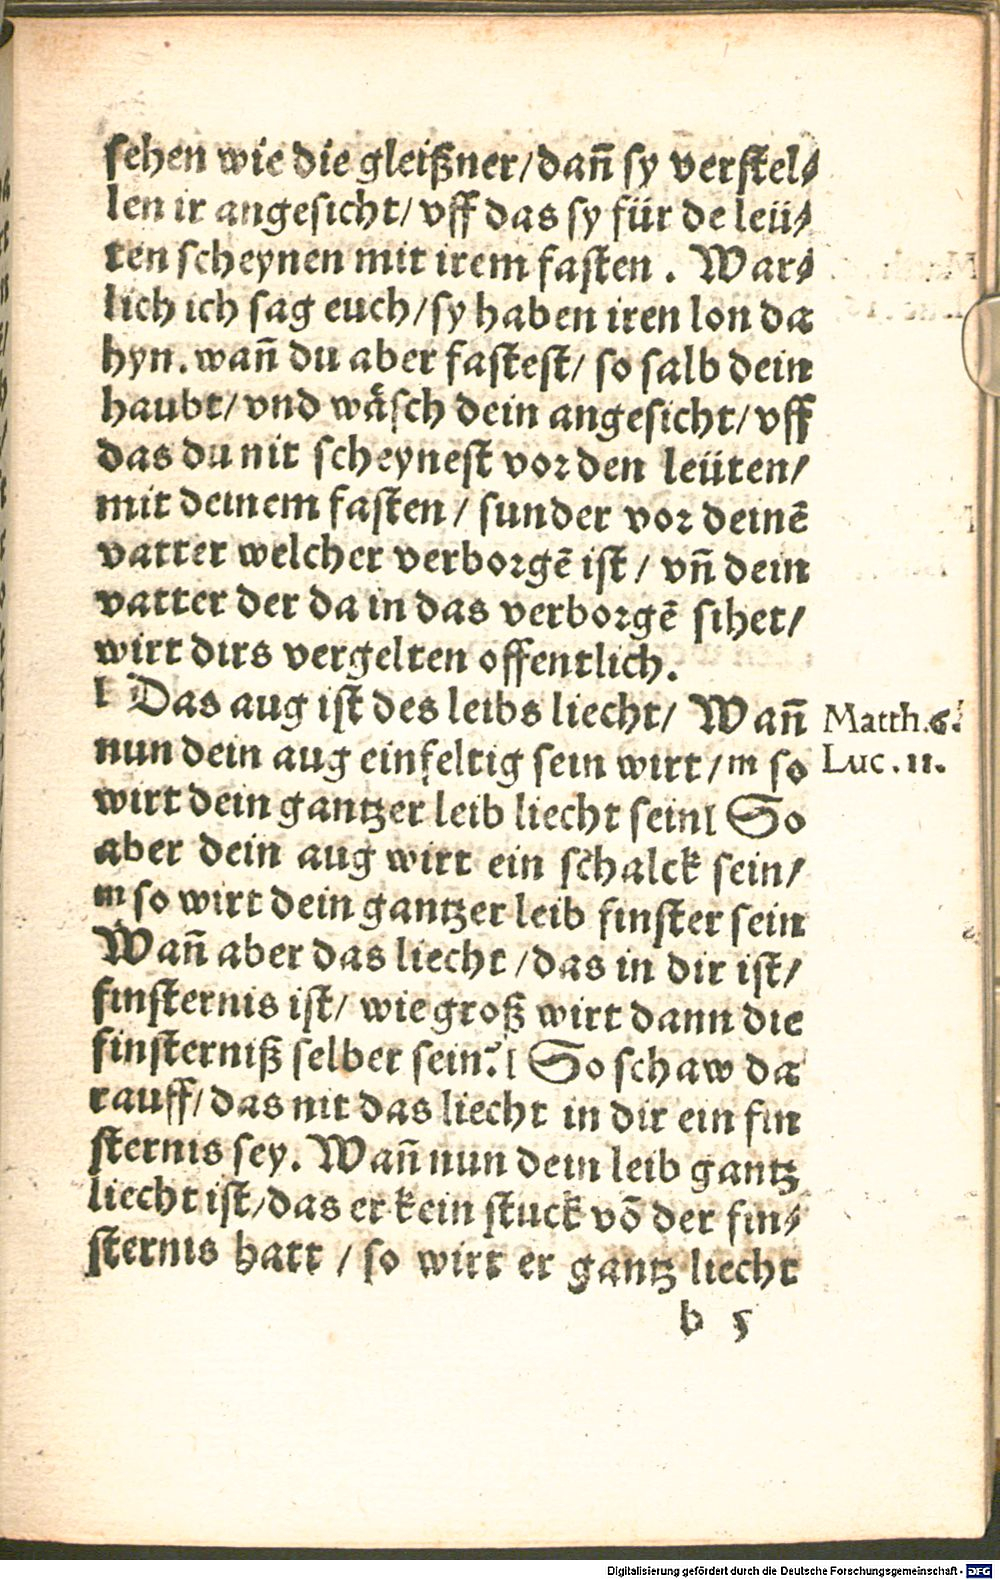 sehen wie die gleißner/dañ sy verstel⸗
len ir angesicht/ vff das sy für de leü⸗
ten scheynen mit irem fasten . War⸗
lich ich sag euch/sy haben iren lon da
hyn. wañ du aber fastest/ so salb dein
haubt/ vnd wäsch dein angesicht/ vff
das du nit scheynest vor den leüten/
mit deinem fasten / sunder vor deinē
vatter welcher verborgē ist / vñ dein
vatter der da in das verborgē sihet/
wirt dirs vergelten offentlich.
l Das aug ist des leibs liecht/ Wañ Matth.6.
nun dein aug einfeltig sein wirt/m so Luc.11.
wirt dein gantzer leib liecht seinl So
aber dein aug wirt ein schalck sein/
m so wirt dein gantzer leib finster sein
Wañ aber das liecht /das in dir ist/
finsternis ist/ wie groß wirt dann die
finsterniß selber sein?l So schaw da
rauff/das nit das liecht in dir ein fin
sternis sey. Wañ nun dein leib gantz
liecht ist/das er kein stuck võ der fin⸗
sternis hatt / so wirt er gantz liecht
b 5
Digitalisierung gefördert durch die Deutsche Forschungsgemeinschaft - DFG